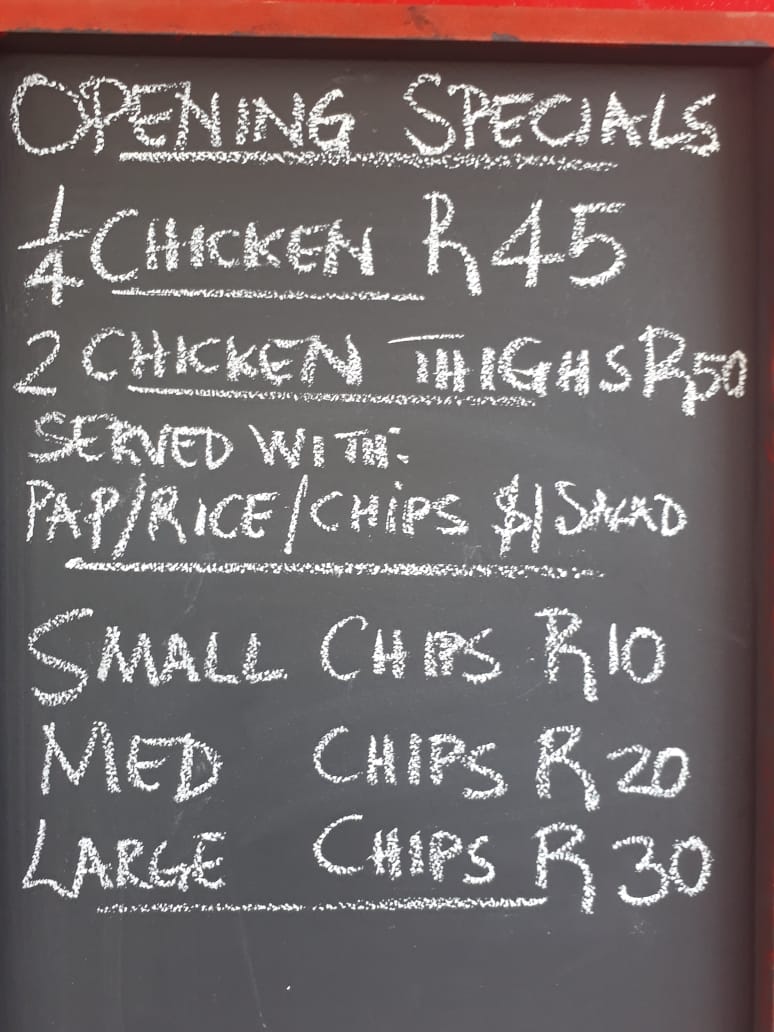 OPENING SPECIALS
1/4 CHICKEN R45
2 CHICKEN THIGHS R50
SERVED WITH:
PAP/RICE/CHIPS $1 SALAD
SMALL CHIPS R10
MED CHIPS R20
LARGE CHIPS R30